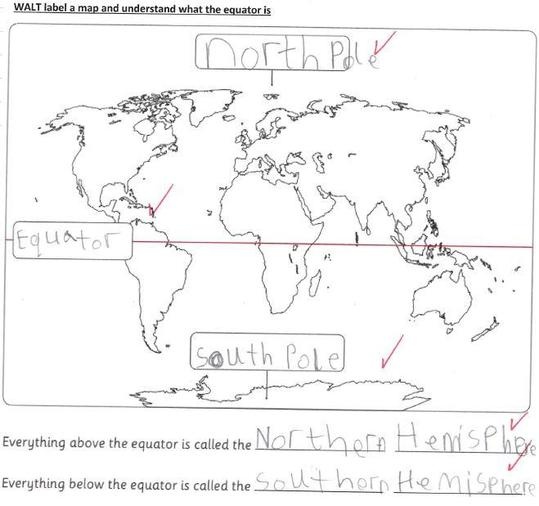 WALT label a map and understand what the equator is
North Pole
Equator
South Pole
Everything above the equator is called the Northern Hemisphere
Everything below the equator is called the Southorn Hemisphere